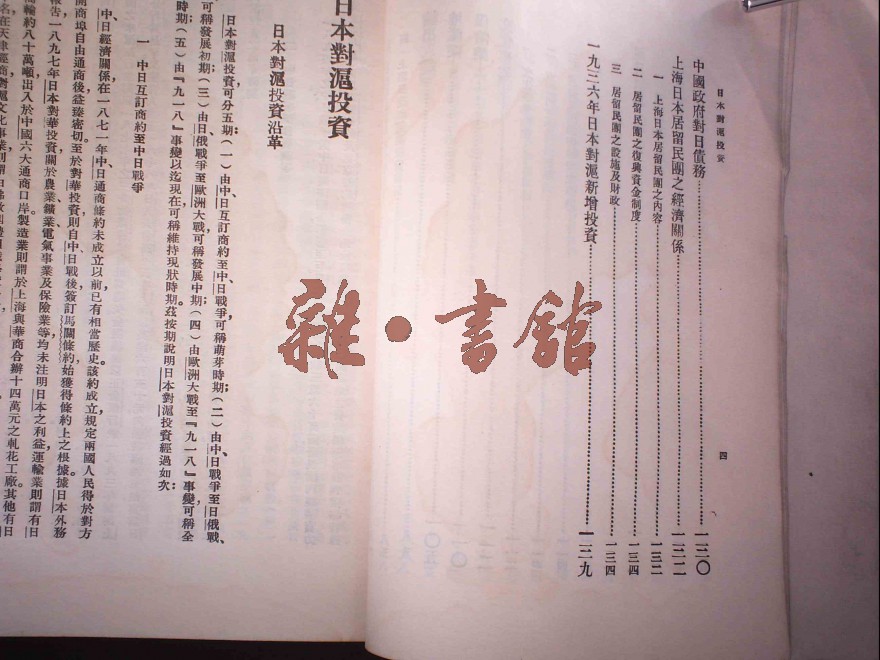 日本對滬投資
中國政府對日債務……一二〇
上海日本居留民團之經濟關係……一二二
一 上海日本居留民團之內容……一三二
二 居留民團之復興資金制度……一三四
三 居留民團之設施及財政……一三四
一九三六年日本對滬新增投資……一三九
四
雜•書館
日本對滬投資
日本對滬投資沿革
日本對滬投資可分五期(一)由中、日互訂商約至中、日戰爭,可稱萌芽時期;(二)由中、日戰爭至日、俄戰、
可稱發展初期;(三)由日、俄戰爭至歐洲大戰可稱發展中期;(四)由歐洲大戰至『九一八』事變,可稱全
時期;(五)由『九一八』事變以迄現在,可稱維持現狀時期。茲按期說明日本對滬投資經過如次:
一 中日互訂商約至中日戰爭
中、日經濟關係,在一八七一年中、日通商條約未成立以前,已有相當歷史。該約成立,規定兩國人民得於對方
開商埠自由通商後,益臻密切。至於對華投資,則自中、日戰後,簽訂馬關條約,始獲得條約上之根據。據日本外務
報告,一八九七年日本對華投資,關於農業、鑛業、電氣事業及保險業等,均未注明日本之利益,運輸業則謂有日
輪約八十萬噸,出入於中國六大通商口岸。製造業則謂於上海與華商合辦十四萬元之軋花工廠。其他有日